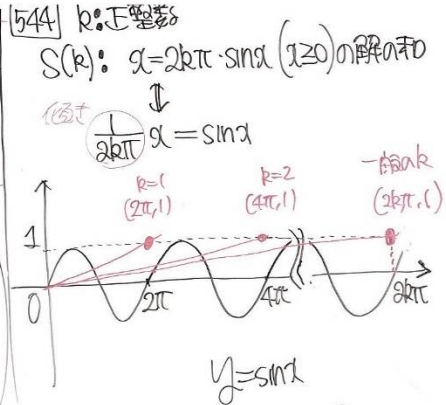 544 k:正整数
S(k): x=2kπ·sinx (x≥0)の解の和
⇕
傾き
1/2kπ x=sinx
k=1
(2π,1)
k=2
(4π,1)
一般のk
(2kπ,1)
1
0 2π 4π 2kπ
y=sinx